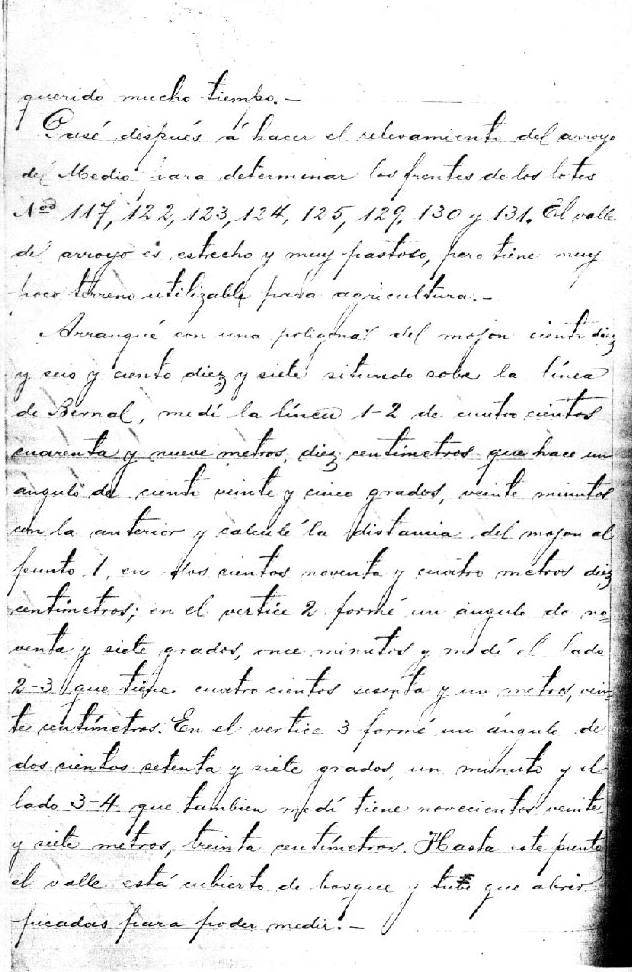 querido mucho tiempo.—
Pasé después á hacer el relevamiento del arroyo
del Medio para determinar los frentes de los lotes
Nos 117, 122, 123, 124, 125, 129, 130 y 131. El valle
de arroyo es estrecho y muy pastoso, pero tiene muy
poco terreno utilizable para agricultura.—
Arranqué con una poligonal del mojon ciento diez
y seis y ciento diez y siete situado sobre la línea
de Bernal, medí la línea 1-2 de cuatro cientos
cuarenta y nueve metros, diez centímetros que hace un
angulo de ciento veinte y cinco grados, veinte minutos
con la anterior y calculé la distancia del mojon al
punto 1, en dos cientos noventa y cuatro metros diez
centímetros; en el vertice 2 formé un ángulo de no-
venta y siete grados, once minutos y medí el lado
2-3 que tiene cuatro cientos sesenta y un metros, vein-
te centímetros. En el vertice 3 formé un ángulo de
dos cientos setenta y siete grados, un minuto y el
lado 3-4 que tambien medí tiene novecientos veinte
y siete metros, treinta centímetros. Hasta este punto
el valle está cubierto de bosque y tube que abrir
picadas para poder medir.—